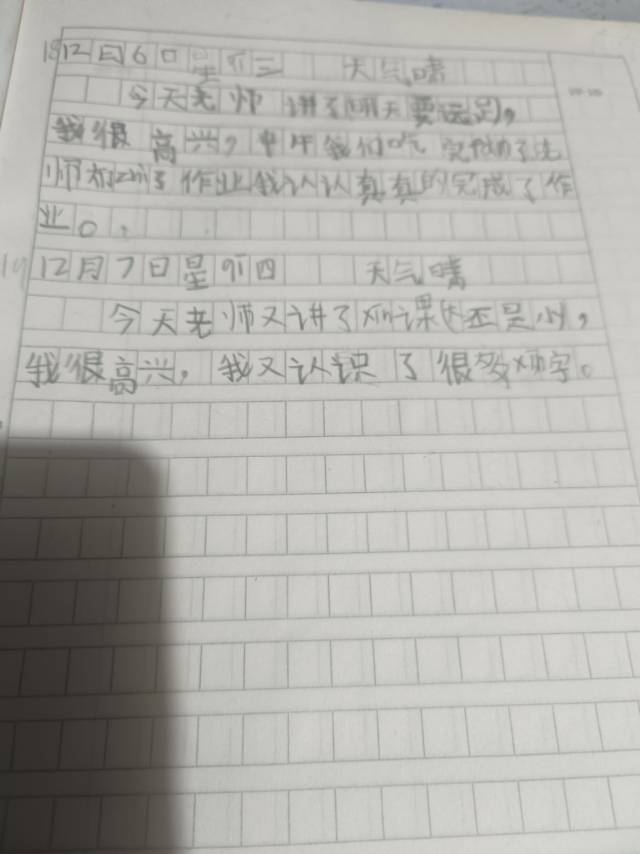 18 12月6日星期三 天气晴
今天老师讲了明天要远足，
我很高兴，中午我们吃完饭了老
师布了作业我认认真真的完成了作
业。
19 12月7日星期四 天气晴
今天老师又讲了新课还是小，
我很高兴，我又认识了很多新字。